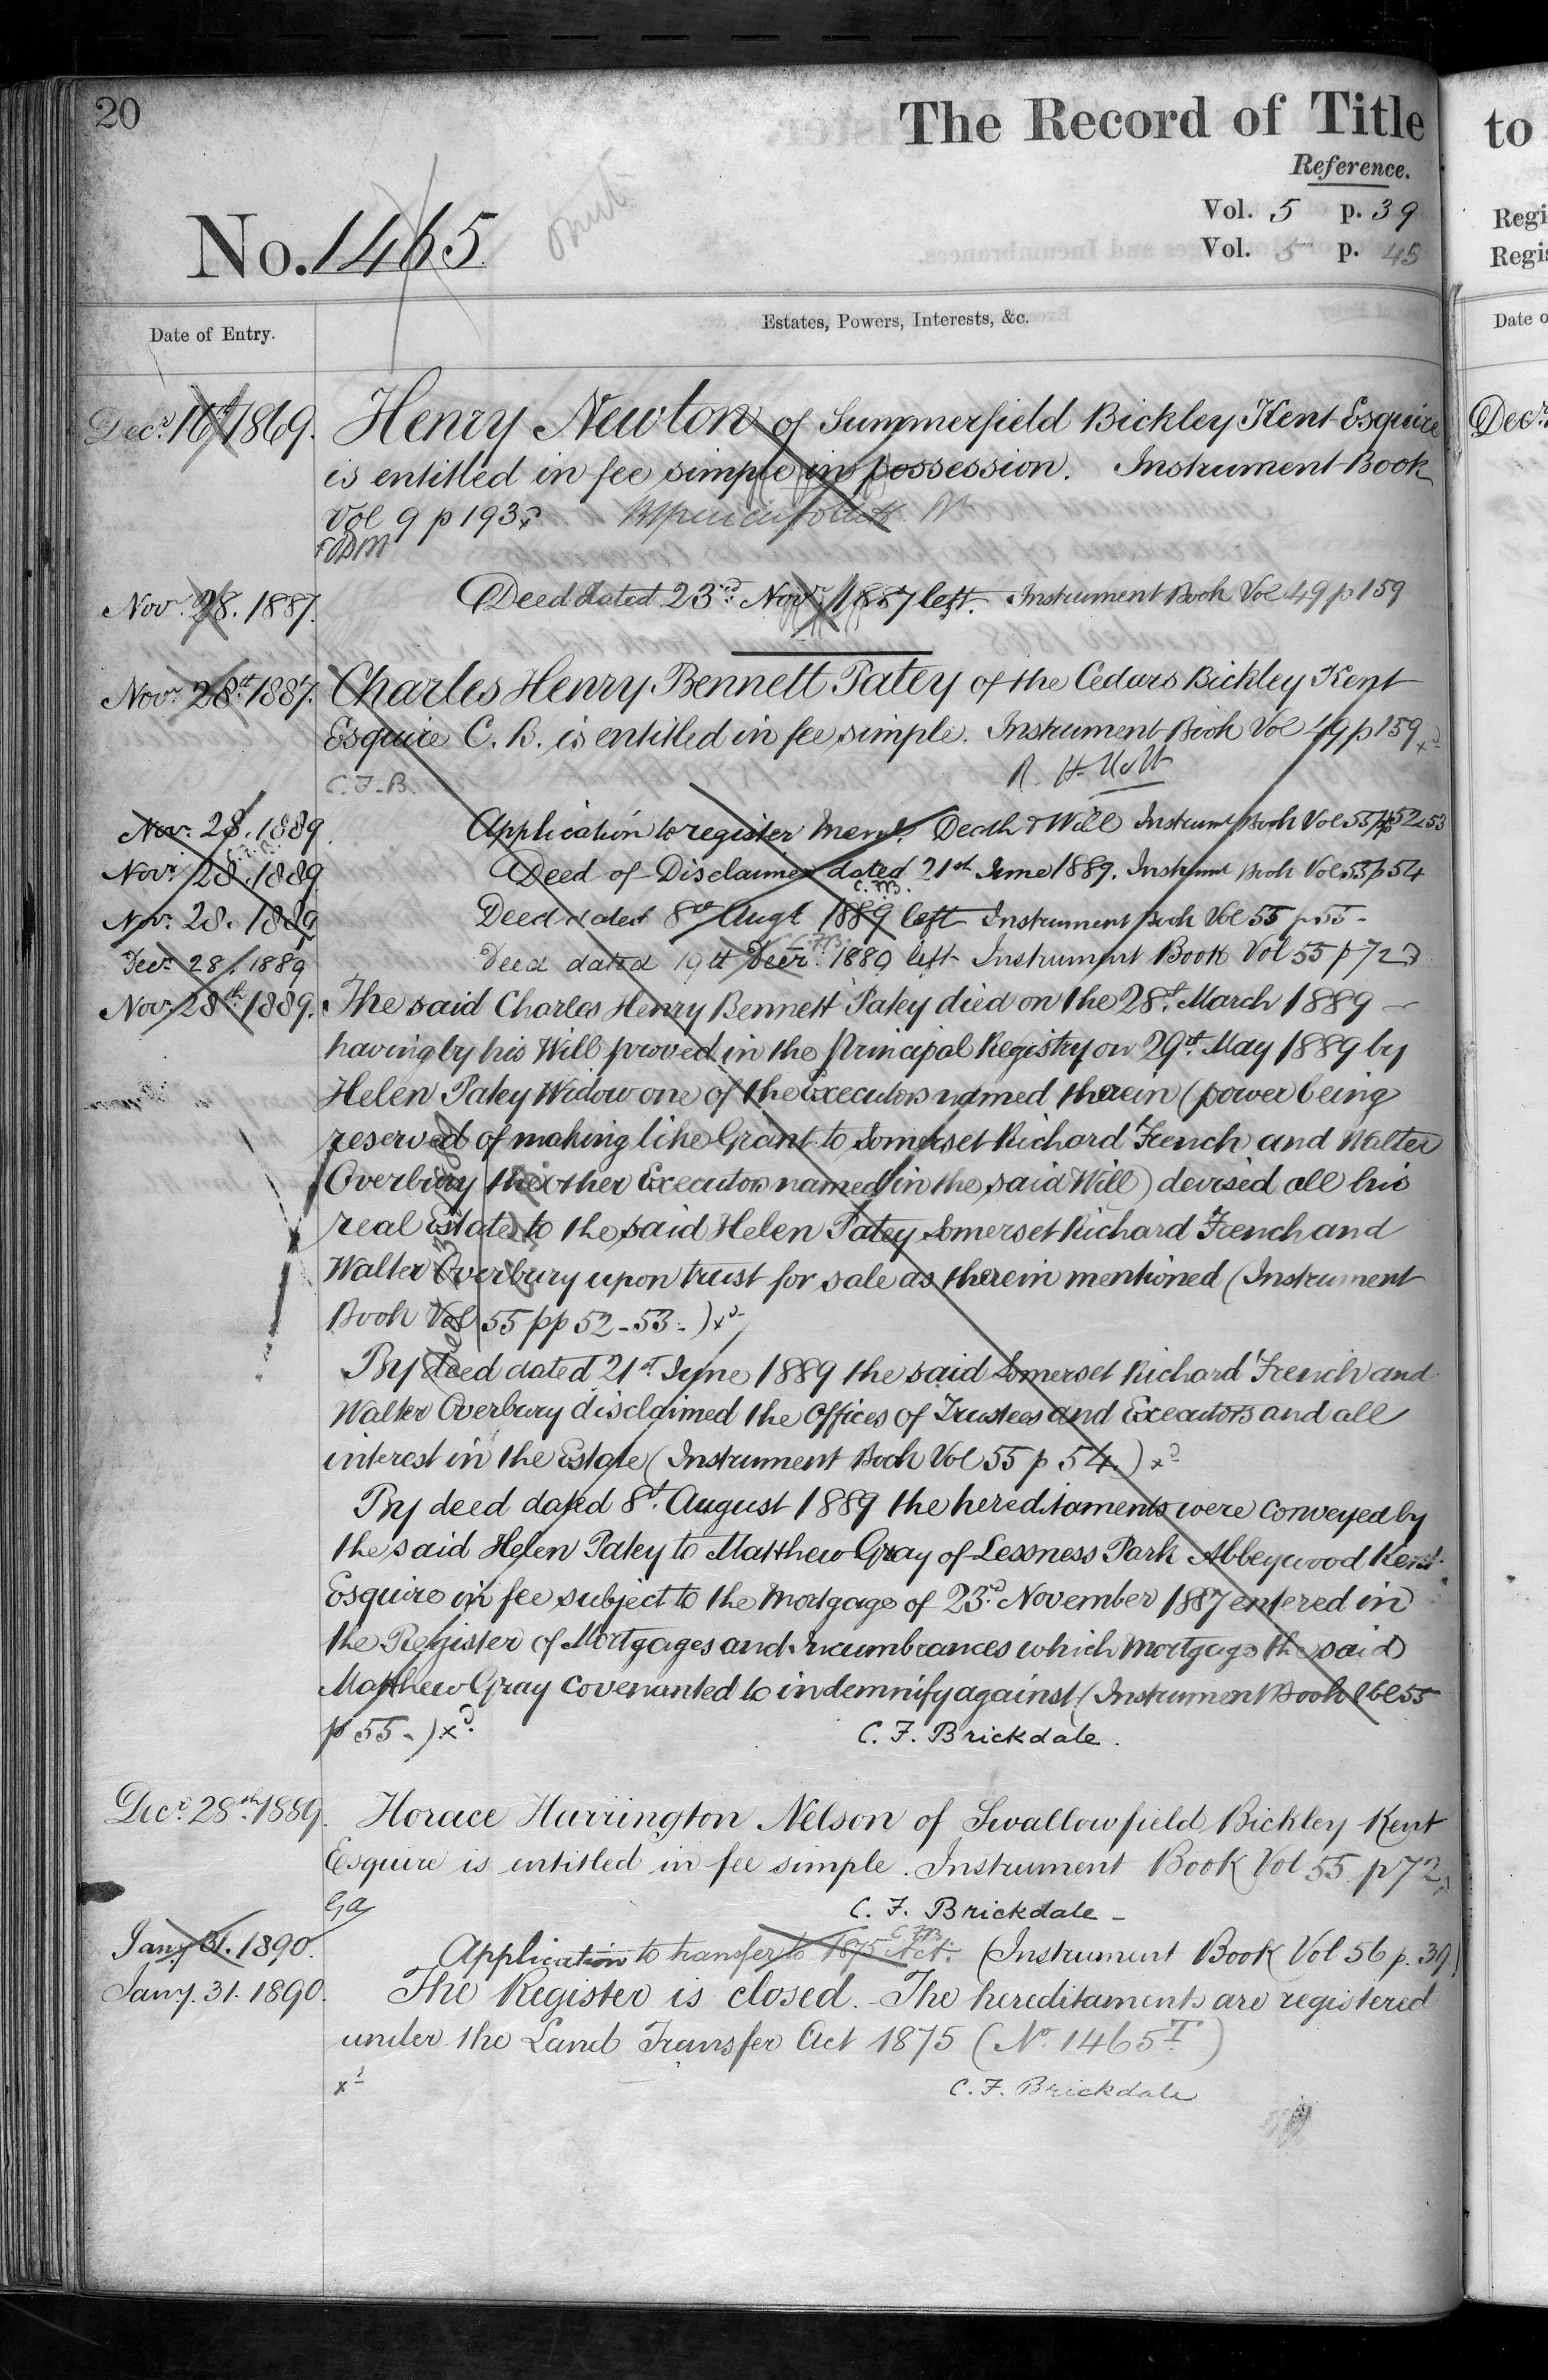 20
The Record of Title
Reference.
Vol. 5 p. 39
Vol. 5 p. 45
No. 1465
Date of Entry.
Estates, Powers, Interests, &c.
Decr. 16th 1869. Henry Newton of Summerfield Bickley Kent Esquire
is entitled in fee simple in possession. Instrument Book
Vol 9 p 193
Nov. 28. 1887. Deed dated 23rd Novr. 1887 left. Instrument Book Vol 49 p 159
Novr. 28th 1887. Charles Henry Bennett Patey of the Cedars Bickley Kent
Esquire C. B. is entitled in fee simple. Instrument Book Vol 49 p 159 xd
C. F. B.
Novr. 28. 1889. Application to register Death & Will Instrumt Book Vol 55 pp 52 53
Novr. 28. 1889 Deed of Disclaimer dated 21st June 1889. Instrumt Book Vol 55 p 54
C.F.B.
Novr. 28. 1889 Deed dated 8th Augt 1889 left Instrument Book Vol 55 p 55 -
C.F.B.
Decr. 28. 1889 Deed dated 19th Decr. 1889 left Instrument Book Vol 55 p 72
Novr. 28th 1889. The said Charles Henry Bennett Patey died on the 28th March 1889 -
having by his Will proved in the Principal Registry on 29th May 1889 by
Helen Patey Widow one of the Executors named therein (power being
reserved of making like Grant to Somerset Richard French and Walter
Overbury the other Executors named in the said Will) devised all his
real Estate to the said Helen Patey Somerset Richard French and
Walter Overbury upon trust for sale as therein mentioned (Instrument
Book Vol 55 pp 52 - 53 - ) xd
By deed dated 21st June 1889 the said Somerset Richard French and
Walter Overbury disclaimed the Offices of Trustees and Executors and all
interest in the Estate (Instrument Book Vol 55 p 54.) xd
By deed dated 8th August 1889 the hereditaments were conveyed by
the said Helen Patey to Matthew Gray of Lessness Park Abbeywood Kent
Esquire in fee subject to the Mortgage of 23rd November 1887 entered in
the Register of Mortgages and Incumbrances which Mortgage the said
Matthew Gray covenanted to indemnify against (Instrument Book Vol 55
p 55 - ) xd.
C. F. Brickdale.
Decr. 28th 1889. Horace Harrington Nelson of Swallowfield Bickley Kent
Esquire is entitled in fee simple. Instrument Book Vol 55 p 72
C. F. Brickdale -
C.F.B.
Jany. 31. 1890. Application to transfer to 1875 Act. (Instrument Book Vol 56 p. 39)
Jany. 31. 1890. The Register is closed. - The hereditaments are registered
under the Land Transfer Act 1875 (No. 1465T)
xd
C. F. Brickdale
to
Regi
Regis
Date o
Decr.